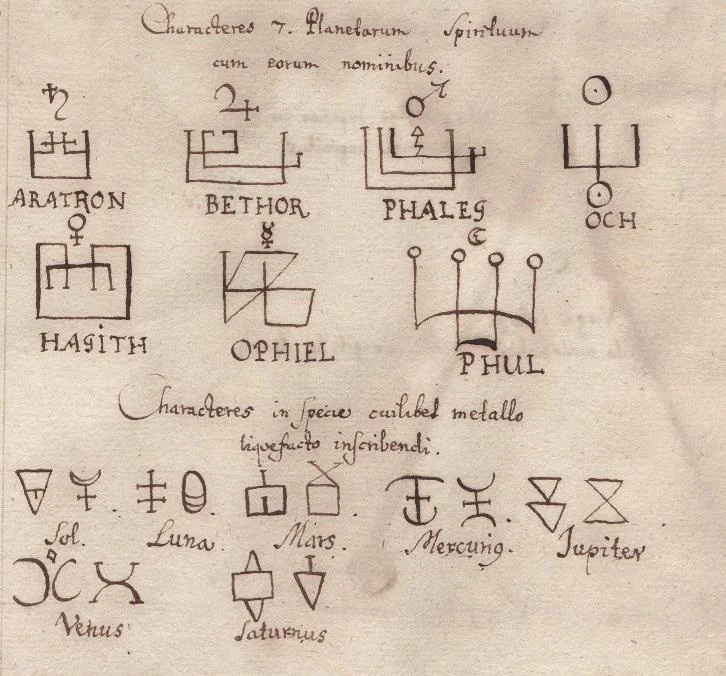 Characteres 7. Planetarum Spirituum
cum eorum nominibus.
♄ ♃ ♂ ☉
ARATRON BETHOR PHALEG OCH
♀ ☿ ☾
HAGITH OPHIEL PHUL
Characteres in specie cuilibet metallo
liquefacto inscribendi.
Sol. Luna. Mars. Mercurig. Jupiter
Venus Saturnus